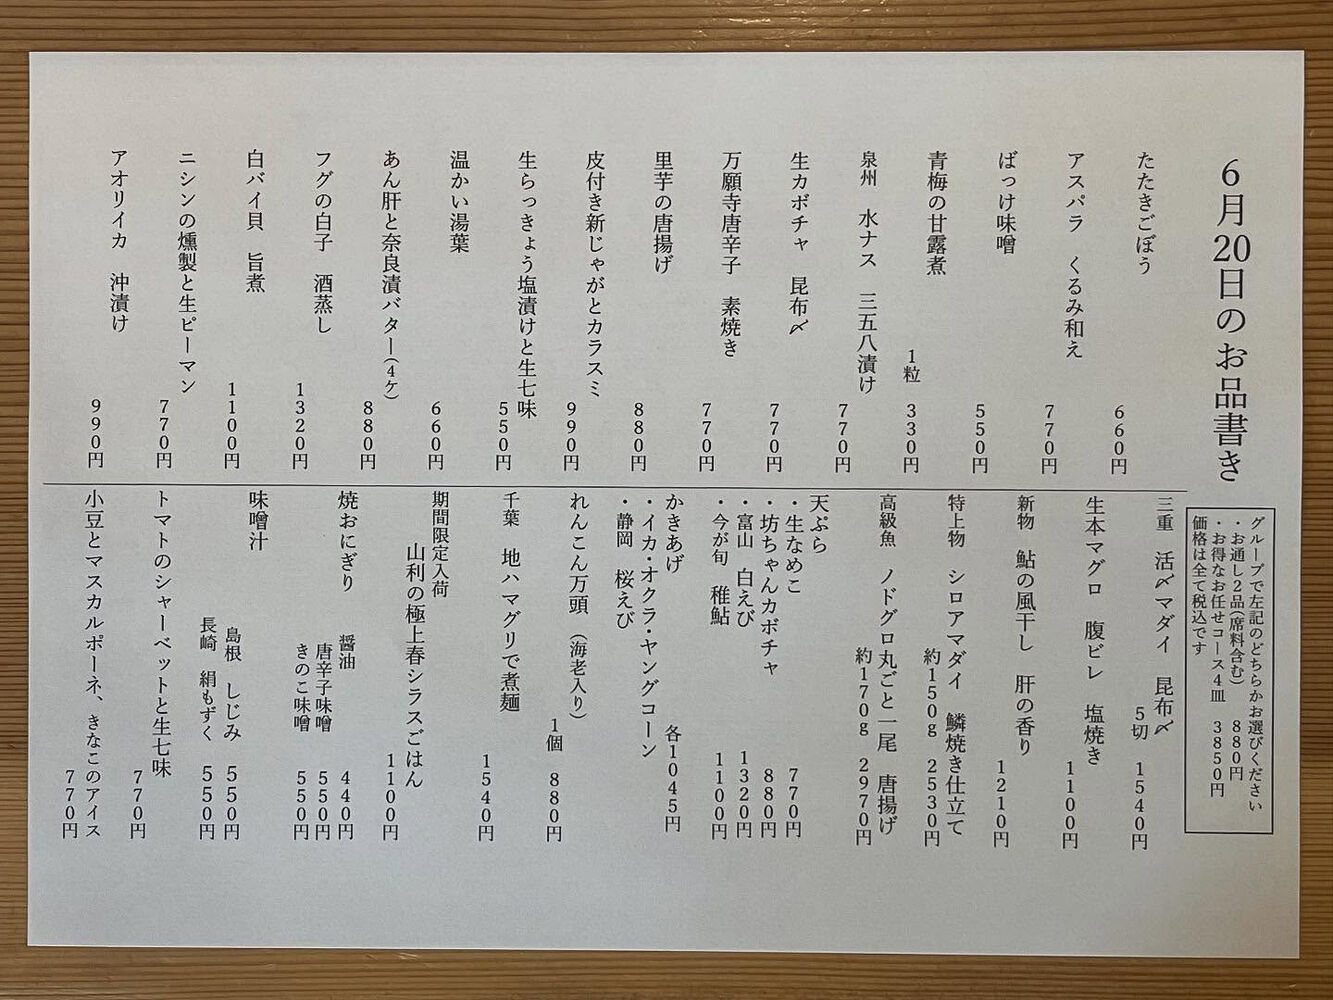 6月20日のお品書き
グループで左記のどちらかお選びください
・お通し2品(席料含む) 880円
・お得なお任せコース4皿 3850円
価格は全て税込です
たたきごぼう 660円
アスパラ くるみ和え 770円
ばっけ味噌 550円
青梅の甘露煮 1粒 330円
泉州 水ナス 三五八漬け 770円
生カボチャ 昆布〆 770円
万願寺唐辛子 素焼き 770円
里芋の唐揚げ 880円
皮付き新じゃがとカラスミ 990円
生らっきょう塩漬けと生七味 550円
温かい湯葉 660円
あん肝と奈良漬バター(4ケ) 880円
フグの白子 酒蒸し 1320円
白バイ貝 旨煮 1100円
ニシンの燻製と生ピーマン 770円
アオリイカ 沖漬け 990円
三重 活〆マダイ 昆布〆 5切 1540円
生本マグロ 腹ビレ 塩焼き 1100円
新物 鮎の風干し 肝の香り 1210円
特上物 シロアマダイ 鱗焼き仕立て
約150g 2530円
高級魚 ノドグロ丸ごと一尾 唐揚げ
約170g 2970円
天ぷら
・生なめこ 770円
・坊ちゃんカボチャ 880円
・富山 白えび 1320円
・今が旬 稚鮎 1100円
かきあげ 各1045円
・イカ・オクラ・ヤングコーン
・静岡 桜えび
れんこん万頭 (海老入り) 1個 880円
千葉 地ハマグリで煮麺 1540円
期間限定入荷
山利の極上春シラスごはん 1100円
焼おにぎり 醤油 440円
唐辛子味噌 550円
きのこ味噌 550円
味噌汁
島根 しじみ 550円
長崎 絹もずく 550円
トマトのシャーベットと生七味 770円
小豆とマスカルポーネ、きなこのアイス 770円